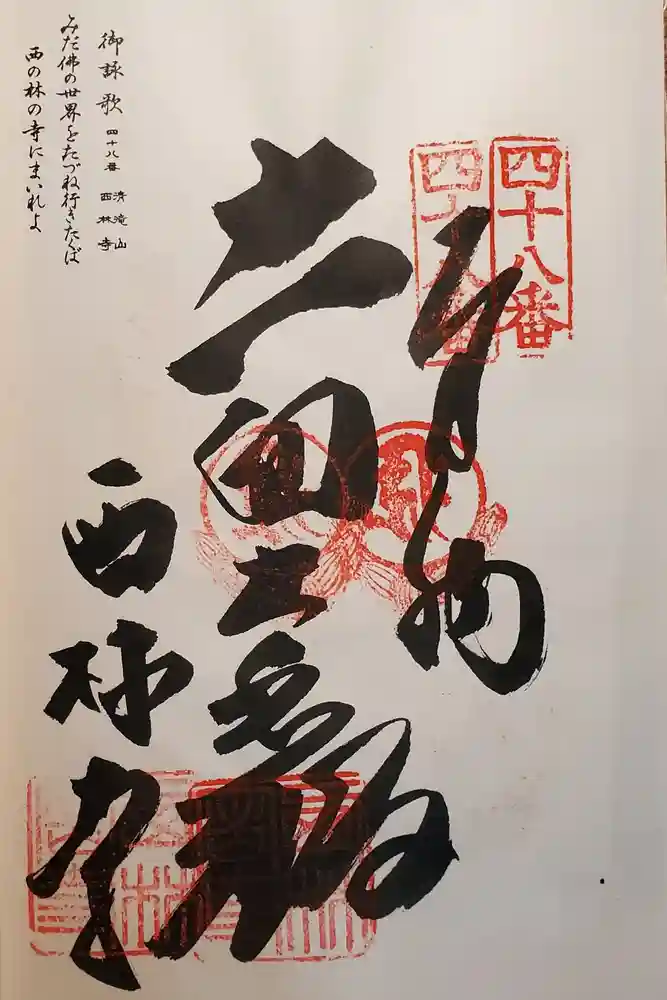 四十八番
四十八番
奉納
十一面大悲殿
西林寺
御詠歌 四十八番 清滝山 西林寺
みだ佛の世界をたづね行きたくば
西の林の寺にまいれよ